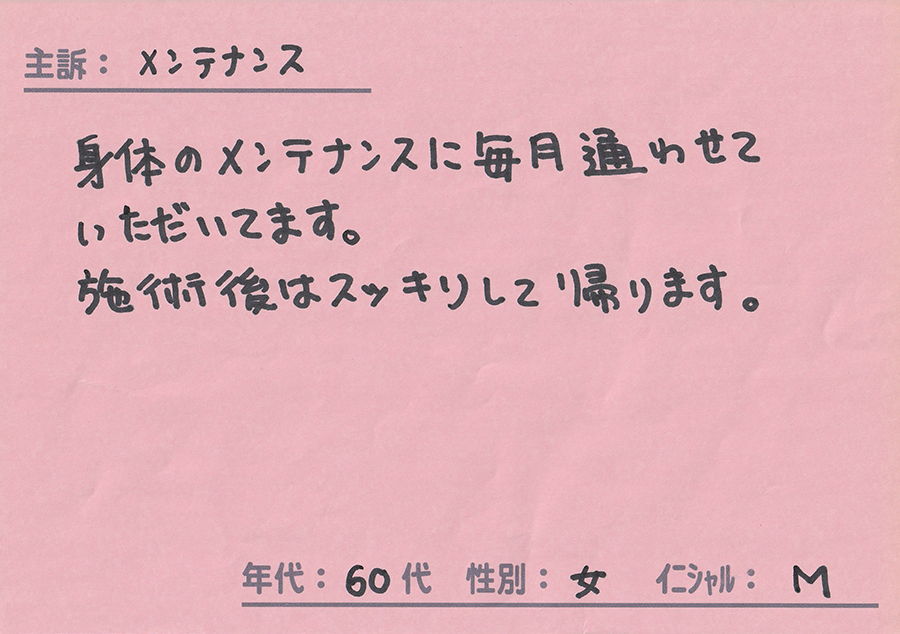 主訴： メンテナンス
身体のメンテナンスに毎月通わせて
いただいてます。
施術後はスッキリして帰ります。
年代： 60代 性別： 女 ｲﾆｼｬﾙ： M